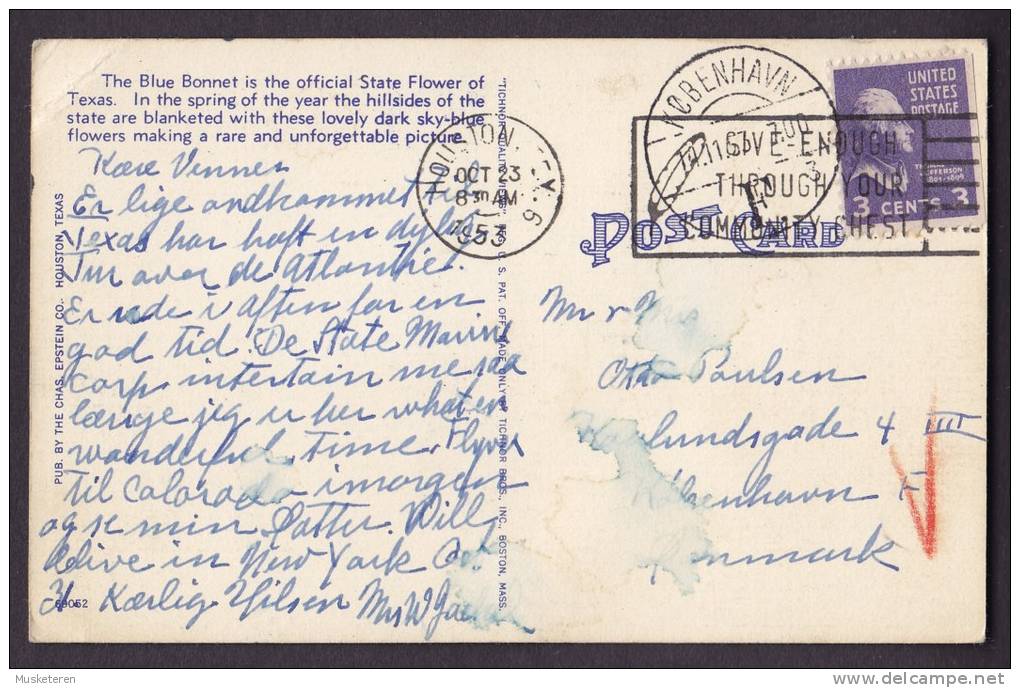 The Blue Bonnet is the official State Flower of
Texas. In the spring of the year the hillsides of the
state are blanketed with these lovely dark sky-blue
flowers making a rare and unforgettable picture.
Kære Venner
Er lige ankommet til
Texas har haft en dejlig
Tur over de Atlantic.
Er ude i aften for en
god tid. De State Marine
Corp intertain me saa
længe jeg er her what en
wonderful time. Flyver
til Colorado imorgen
og se min Datter. Will
arive in New York Oct
31 Kærlig Hilsen Mrs W
69052
PUB. BY THE CHAS. EPSTEIN CO., HOUSTON, TEXAS
"TICHNOR QUALITY VIEWS," REG. U. S. PAT. OFF. MADE ONLY BY TICHNOR BROS., INC., BOSTON, MASS.
HOUSTON, TEX. 6
OCT 23
8 30 AM
1953
KØBENHAVN
GIVE-ENOUGH
THROUGH YOUR
COMMUNITY CHEST
UNITED
STATES
POSTAGE
THOMAS
JEFFERSON
1801-1809
3 CENTS 3
POST CARD
Mr & Mrs
Otto Paulsen
4 III
København
Danmark
Musketeren
delcampe.net